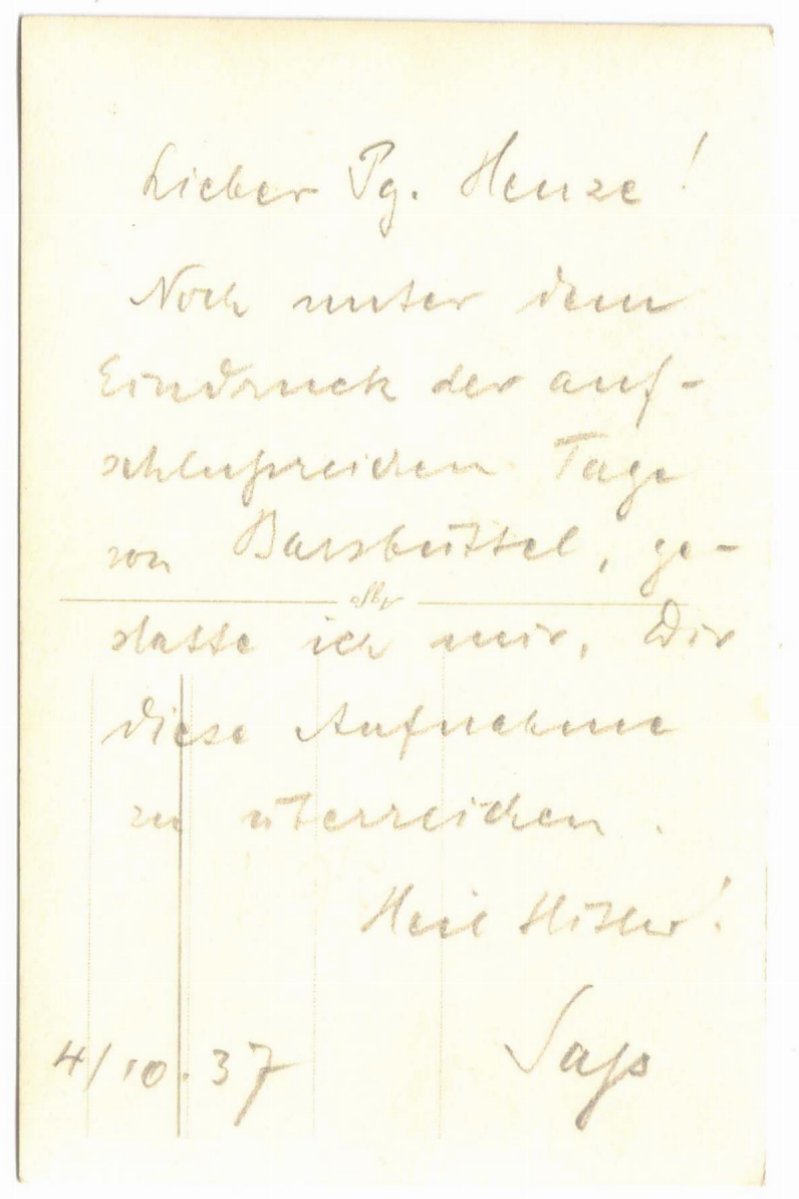 Lieber Pg. Henze!
Noch unter dem
Eindruck der auf-
schlußreichen Tage
von Barsbüttel, ge-
statte ich mir, Dir
diese Aufnahme
zu überreichen.
Heil Hitler!
4/10.37 Saß